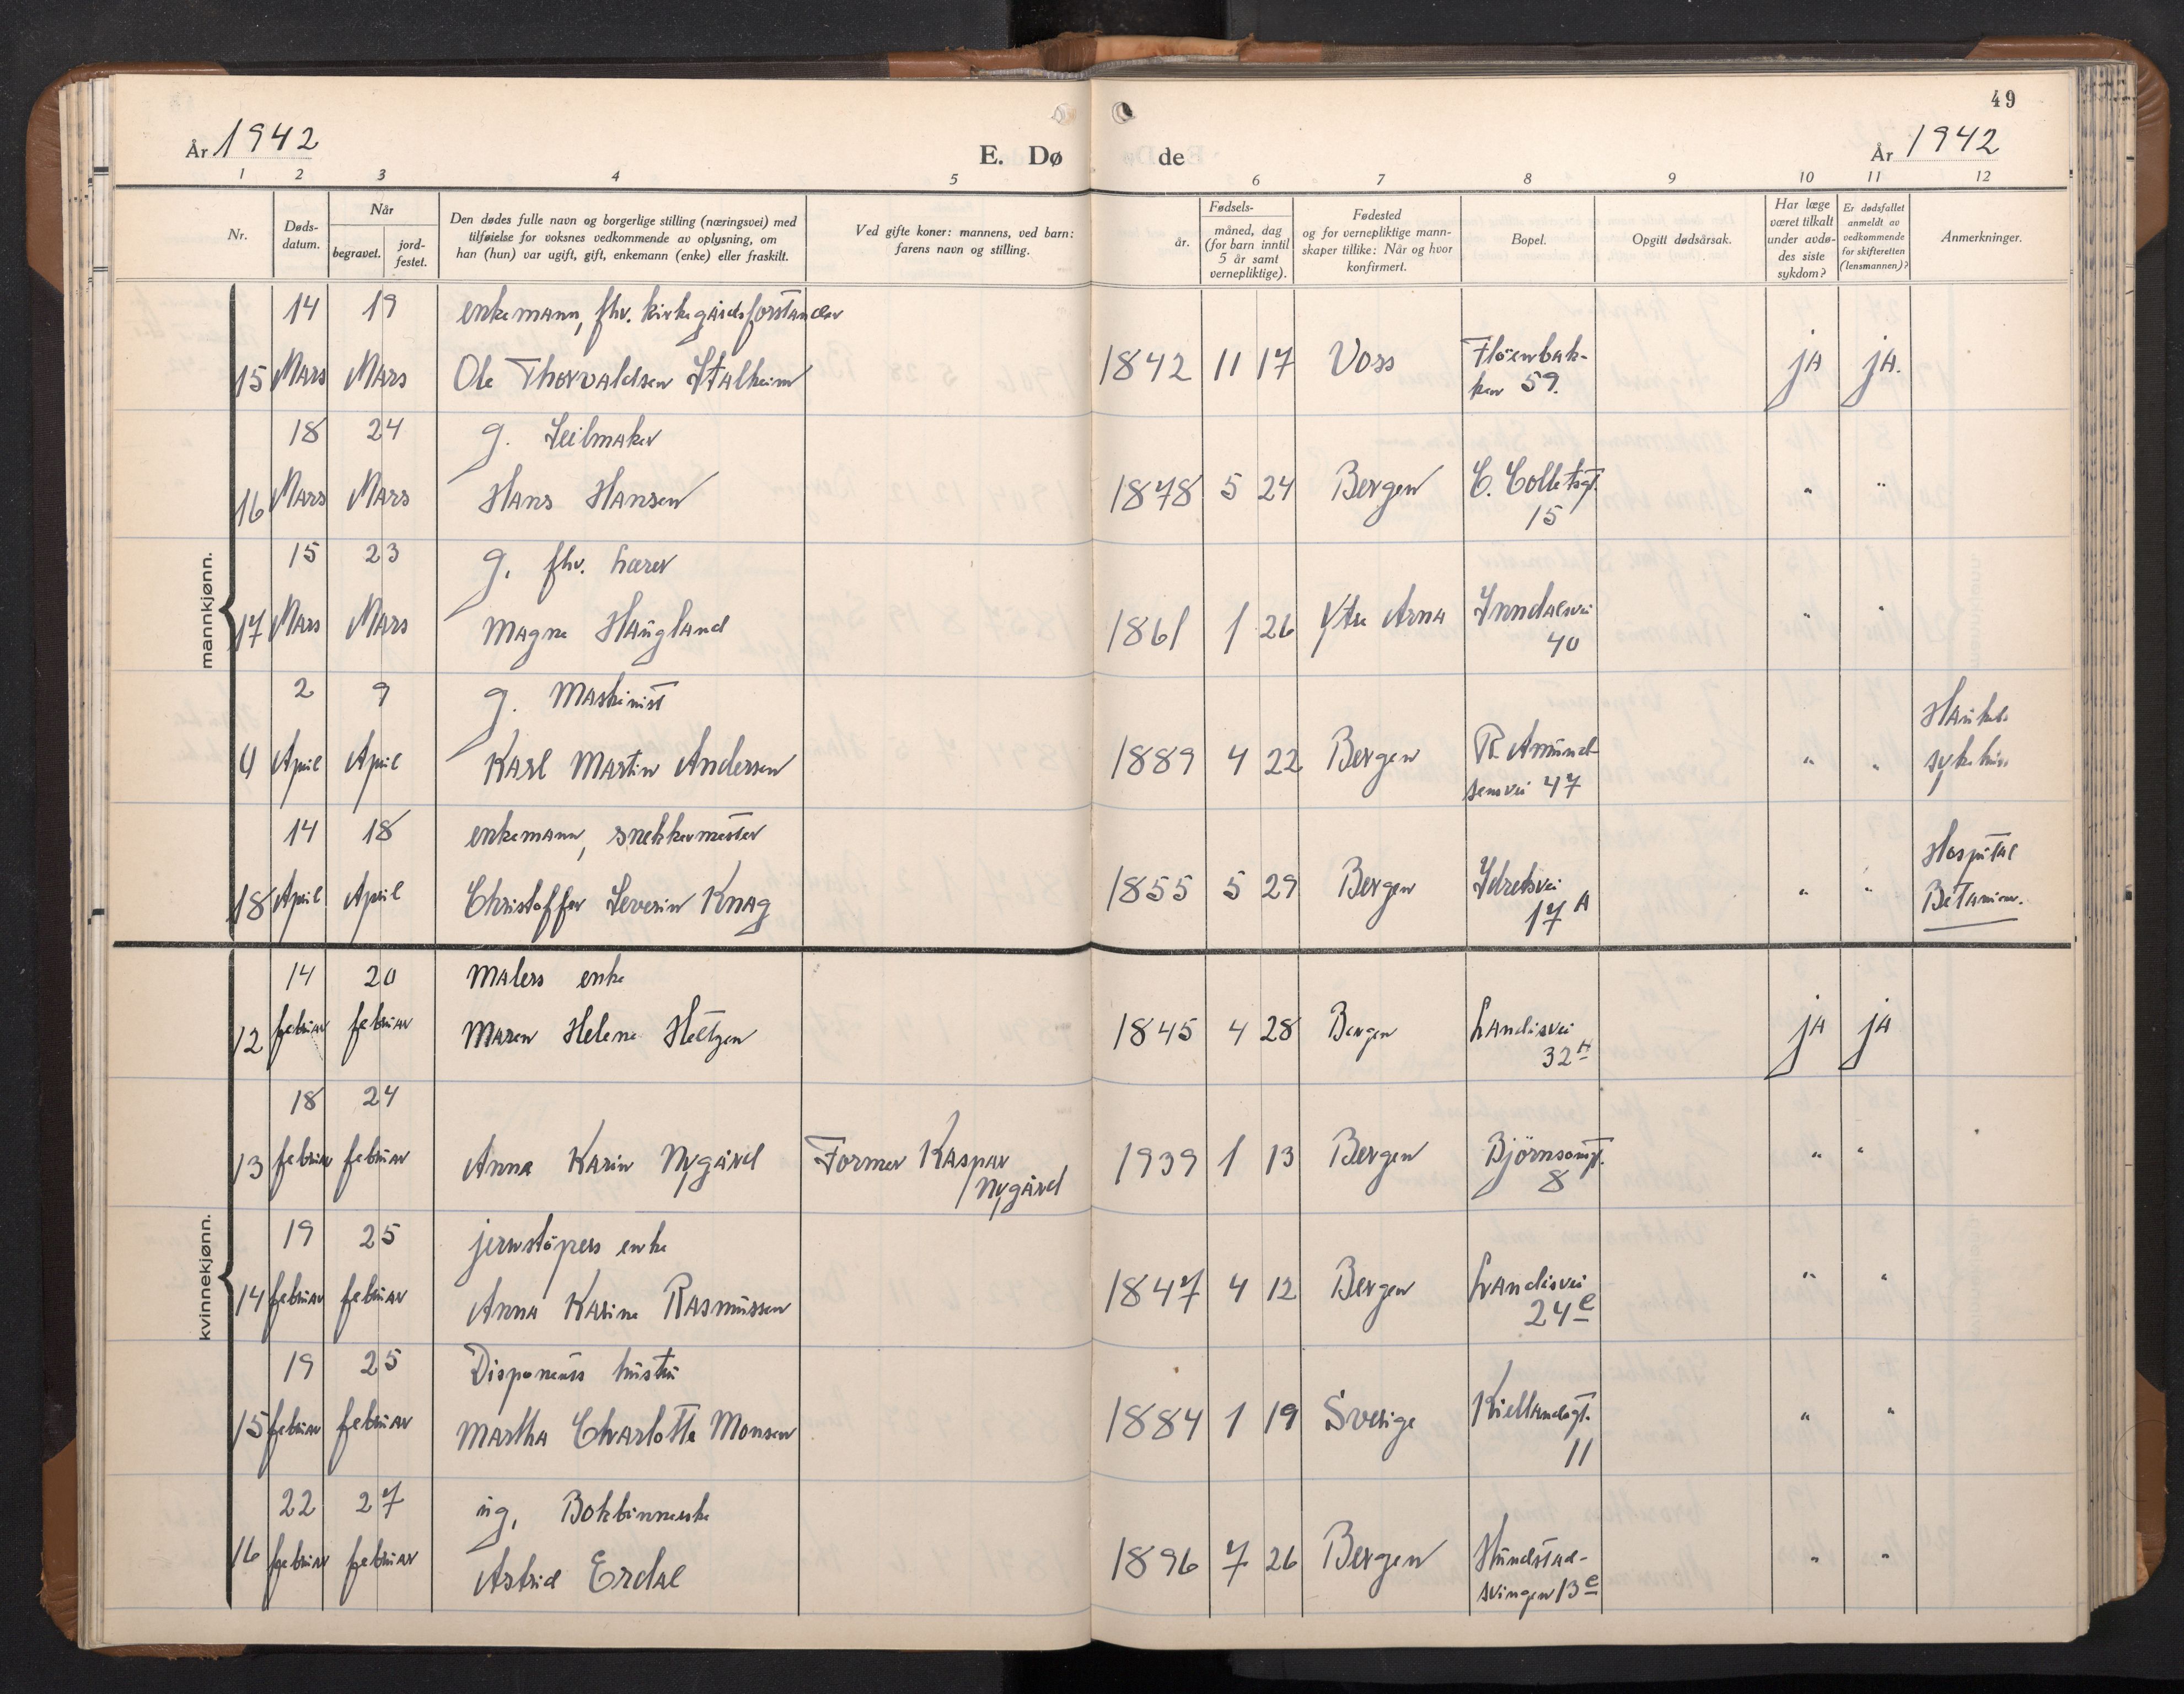 49
År 1942
E. Dø de
År 1942
1 2 3 4 5 6 7 8 9 10 11 12
Nr.
Døds-
datum.
Når
begravet.
jord-
festet.
Den dødes fulle navn og borgerlige stilling (næringsvei) med
tilføielse for voksnes vedkommende av oplysning, om
han (hun) var ugift, gift, enkemann (enke) eller fraskilt.
Ved gifte koner: mannens, ved barn:
farens navn og stilling.
Fødsels-
år.
måned, dag
(for barn inntil
5 år samt
vernepliktige).
Fødested
og for vernepliktige mann-
skaper tillike: Når og hvor
konfirmert.
Bopel.
Opgitt dødsårsak.
Har læge
været tilkalt
under avdø-
des siste
sykdom?
Er dødsfallet
anmeldt av
vedkommende
for skifteretten
(lensmannen)?
Anmerkninger.
mannkjønn.
14 19 enkemann, fhv. kirkegårdsforstander
15 Mars Mars Ole Thorvaldsen Stalheim 1842 11 17 Voss Fløenbak-
ken 59. ja ja.
18 24 g. Seilmaker
16 Mars Mars Hans Hansen 1878 5 24 Bergen C. Colletsgt.
15 " "
15 23 g. fhv. lærer
17 Mars Mars Magne Haugland 1861 1 26 Ytre Arna Inndalsvei
40 " "
2 9 g. Maskinist
4 April April Karl Martin Andersen 1889 4 22 Bergen R. Amund-
sensvei 47 " "
Haukel.
sykehus
14 18 enkemann, snekkermester
18 April April Christoffer Severin Knag 1855 5 29 Bergen Idretsvei
17 A " "
Hospital
Betanien.
kvinnekjønn.
14 20 Malers enke
12 februar februar Maren Helene Heltzen 1845 4 28 Bergen Landåsvei
32 A ja ja
18 24
13 februar februar Anna Karin Nygård Former Kaspar
Nygård 1939 1 13 Bergen Björnsonsgt.
8 " "
19 25 jernstøpers enke
14 februar februar Anna Karine Rasmussen 1847 4 12 Bergen Landåsvei
24 e " "
19 25 Disponents hustru
15 februar februar Martha Charlotte Monsen 1884 1 19 Sverige Kiellandsgt.
11 " "
22 27 ug. Bokbinnerske
16 februar februar Astrid Erdal 1896 7 26 Bergen Hundstad-
svingen 13 e " "